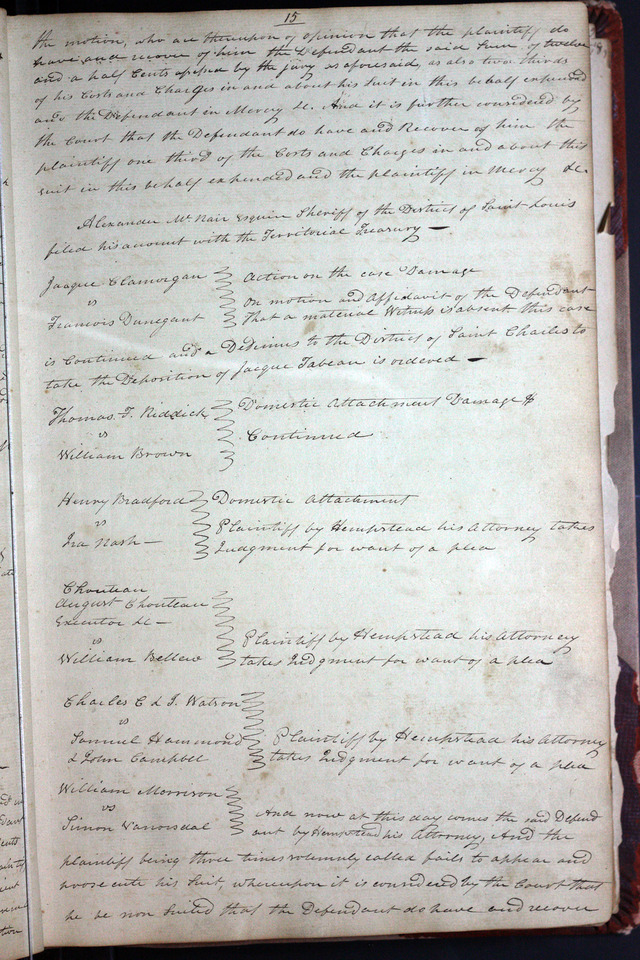 15
the motion, who are thereupon of opinion that the plaintiff do
have and recover of him the Defendant the said Sum of twelve
and a half Cents assessed by the jury as aforesaid, as also two thirds
of his Costs and Charges in and about his Suit in this behalf expended
and the Defendant in Mercy &c. And it is further considered by
the Court that the Defendant do have and Recover of him the
plaintiff one third of the Costs and Charges in and about this
suit in this behalf expended and the plaintiff in Mercy &c.
Alexander McNair Esquire Sheriff of the District of Saint Louis
filed his account with the Territorial Treasury —
Jacque Clamorgan
vs
Francois Dunegant
Action on the case Damage
On motion and Affidavit of the Defendant
that a material Witness is absent this case
is Continued and a Dedimus to the District of Saint Charles to
take the Deposition of Jacque Tabeau is ordered —
Thomas F. Riddick
vs
William Brown
Domestic Attachment Damage $
Continued
Henry Bradford
vs
Ira Nash —
Domestic Attachment
Plaintiff by Hempstead his Attorney takes
Judgment for want of a plea
Chouteau
August Chouteau
Executor &c —
vs
William Bellew
Plaintiff by Hempstead his Attorney
takes Judgment for want of a plea
Charles C & J. Watson
vs
Samuel Hammond
& John Campbell
Plaintiff by Hempstead his Attorney
takes Judgment for want of a plea
William Morrison
vs
Simon Vanorsdal
And now at this day comes the said Defend
ant by Hempstead his Attorney, And the
plaintiff being three times solemnly called fails to appear and
prosecute his Suit, whereupon it is considered by the Court that
he be non Suited that the Defendant do have and recover